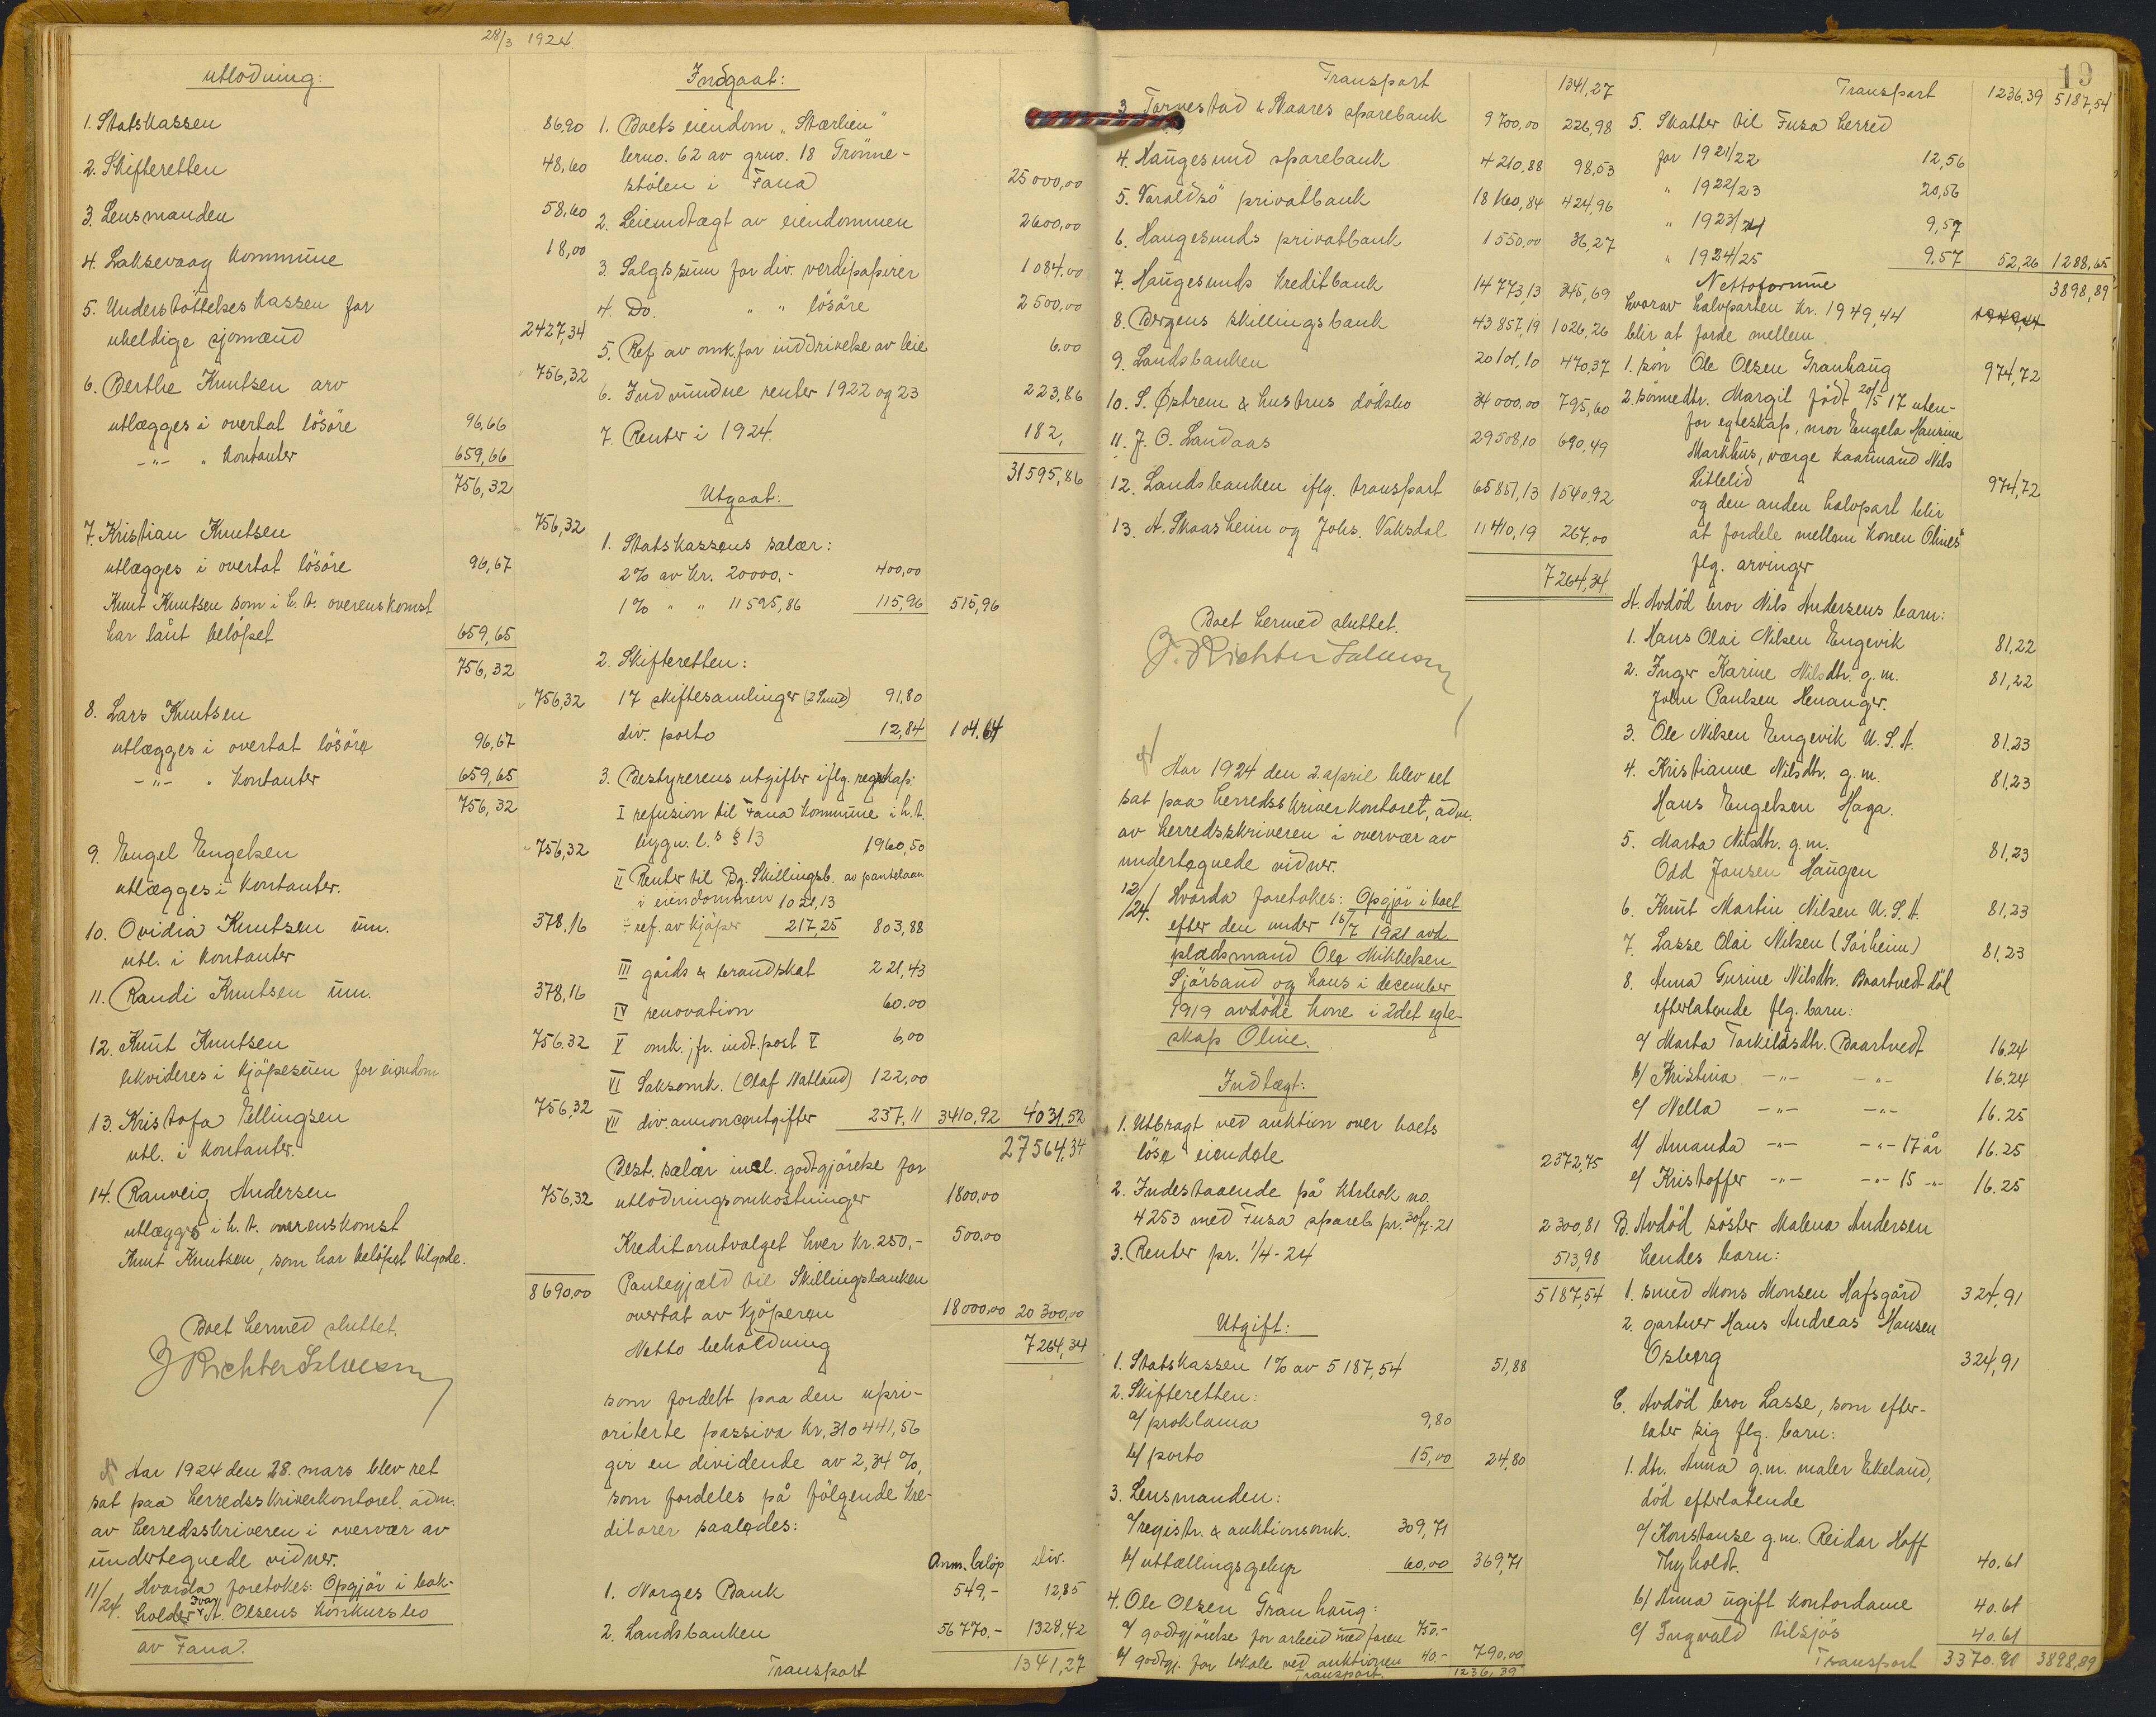 28/3 1924.
utlodning:
1. Statskassen 86,90
2. Skifteretten 48,60
3. Lensmanden 58,60
4. Laksevaag kommune 18,00
5. Understöttelseskassen for
uheldige sjömænd 2427,34
6. Berthe Knutsen arv 756,32
utlægges i overtat lösöre 96,66
-"- " kontanter 659,66
756,32
7. Kristian Knutsen 756,32
utlægges i overtat lösöre 96,67
Knut Knutsen som i h.t. overenskomst
har lånt belöpet 659,65
756,32
8. Lars Knutsen 756,32
utlægges i overtat lösöre 96,67
-"- " kontanter 659,65
756,32
9. Engel Engelsen 756,32
utlægges i kontanter.
10. Ovidia Knutsen um. 378,16
utl. i kontanter
11. Randi Knutsen um. 378,16
12. Knut Knutsen 756.32
likvideres i kjöpesum for eiendom
13. Kristofa Ellingsen 756,32
utl. i kontanter.
14. Ranveig Andersen 756,32
utlægges i h.t. overenskomst
Knut Knutsen, som har belöpet tilgode.
8690,00
Boet hermed sluttet.
J Richter Salvesen
Aar 1924 den 28. mars blev ret
sat paa herredsskriverkontoret, adm.
av herredsskriveren i overvær av
undertegnede vidner.
11/24. Hvorda foretokes: Opgjör i bok-
holder Ivar A. Olsens konkursbo
av Fana.
Indgaat:
1. Boets eiendom "Stærlien"
brno. 62 av grno. 18 Grönne-
stölen i Fana 25000,00
2. Leieindtægt av eiendommen 2600,00
3. Salgssum for div. verdipapirer 1084.00
4. Do. " " lösöre 2500,00
5. Ref av omk. for inddrivelse av leie 6.00
6. Indvundne renter 1922 og 23 223,86
7. Renter i 1924. 182,
31595,86
Utgaat:
1. Statskassens salær:
2% av kr. 20000,- 400,00
1% " " 11595,86 115,96 515,96
2. Skifteretten:
17 skiftesamlinger 91,80
div. porto 12,84 104.64
3. Bestyrerens utgifter iflg. regnskap:
I refusion til Fana kommune i h.t.
bygn. l.s § 13 1960,50
II Renter til Bg. Skillingsb. av pantelaan
i eiendommen 1021,13
÷ ref. av kjöper 217,25 803,88
III gårds & brandskat 221,43
IV renovation 60.00
V omk. jfr. indt. post V 6,00
VI Saksomk. (Olaf Natland) 122,00
VII div. annonceutgifter 237,11 3410,92 4031,52
27564,34
Best. salær incl. godtgjörelse for
utlodningsomkostninger 1800,00
Kreditorutvalget hver kr. 250,- 500,00
Pantegjæld til Skillingsbanken
overtat av kjöperen 18000,00 20300,00
Netto beholdning 7264,34
som fordelt paa den upri-
oriterte passiva kr. 310441,56
gir en dividende av 2,34 %,
som fordeles på fölgende kre-
ditorer saaledes:
Anm. belöp Div.
1. Norges Bank 549,- 12,85
2. Landsbanken 56770.- 1328,42
Transport 1341,27
Transport 1341,27
3. Tornestad & Skaares sparebank 9700,00 226,98
4. Haugesund sparebank 4210,88 98,53
5. Varaldsö privatbank 18160,84 424,96
6. Haugesunds privatbank 1550,00 36,27
7. Haugesunds kreditbank 14773,13 345,69
8. Bergens skillingsbank 43857,19 1026,26
9. Landsbanken 20101,10 470,37
10. S. Östrem & hustrus dödsbo 34000.00 795,60
11. J. O. Landaas 29508,10 690,49
12. Landsbanken iflg. transport 65851,13 1540.92
13. A. Skaasheim og Johs. Vaksdal 11410,19 267,00
7264,34
Boet hermed sluttet.
J. Richter Salvesen
Aar 1924 den 2. april blev ret
sat paa herredsskriverkontoret, adm.
av herredsskriveren i overvær av
undertegnede vidner.
12/24. Hvorda foretokes: Opgjör i boet
efter den under 16/7 1921 avd.
pladsmand Ole Mikkelsen
Sjörsand og hans i december
1919 avdöde kone i 2det egte-
skap Oline.
Indtægt:
1. Utbragt ved auktion over boets
löse eiendele 2372,75
2. Indestaaende på ktrbok no.
4253 med Fusa spareb. pr. 30/7-21 2300,81
3. Renter pr. 1/4-24 513,98
5187,54
Utgift:
1. Statskassen 1% av 5187,54 51,88
2. Skifteretten:
a/ proklama 9,80
b/ porto 15,00 24,80
3. Lensmanden:
a/ registr. & auktionsomk. 309,71
b/ uttællingsgebyr 60,00 369,71
4. Ole Olsen Granhaug:
a/ godtgjörelse for arbeid med faren 750.-
b/ godtgj. for lokale ved auktionen 40.- 790,00
Transport. 1236,39
19
Transport 1236,39 5187,54
5. Skatter til Fusa herred
for 1921/22 12,56
" 1922/23 20,56
" 1923/24 9,57
" 1924/25 9,57 52,26 1288,65
Nettoformue 3898,89
hvorav halvparten kr. 1949,44 1949,44
blir at forde mellem
1. sön Ole Olsen Granhaug 974,72
2. sönnedtr. Margit född 20/5 17 uten-
for egteskap, mor Engela Hansine
Markhus, værge kaarmand Nils
Litlelid 974,72
og den anden halvpart blir
at fordele mellem konen Olines
flg. arvinger
A. Avdöd bror Nils Andersens barn:
1. Hans Olai Nilsen Engevik 81,22
2. Inger Karine Nilsdtr. g.m. 81,22
John Paulsen Henanger.
3. Ole Nilsen Engevik U.S.A. 81.23
4. Kristianne Nilsdtr. g.m. 81,23
Hans Engelsen Haga.
5. Marta Nilsdtr. g.m. 81,23
Odd Jansen Haugen
6. Knut Martin Nilsen U.S.A. 81,23
7. Lasse Olai Nilsen (Sörheim) 81,23
8. Anna Gurine Nilsdtr. Baartvedt död
efterlatende flg. barn:
a/ Marta Torkildsdtr. Baartvedt 16.24
b/ Kristina -"- -"- 16.24
c/ Nella -"- -"- 16.25
d/ Amanda -"- -"- 17 år 16.25
e/ Kristoffer -"- -"- 15 -"- 16.25
B. Avdöd söster Malena Andersen
hendes barn:
1. smed Mons Monsen Hafsgård 324,91
2. gartner Hans Andreas Hansen
Osberg 324,91
C. Avdöd bror Lasse, som efter-
later sig flg. barn:
1. dtr. Anna g.m. maler Ekeland,
död efterlatende
a/ Konstanse g.m. Reidar Hoff
Thyholdt. 40.61
b/ Anna ugift kontordame 40.61
c/ Ingvald tilsjös 40.61
Transport 3370.91 3898,89